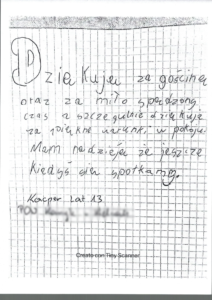 Dziękujeu za gościnę
oraz za miło spędzony
czas a szczegulnie dziękuje
za piękne warunki w pokoju.
Mam nadzieję że jeszcze
kiedyś się spotkamy.
Kacper Lat 13
Created with Tiny Scanner